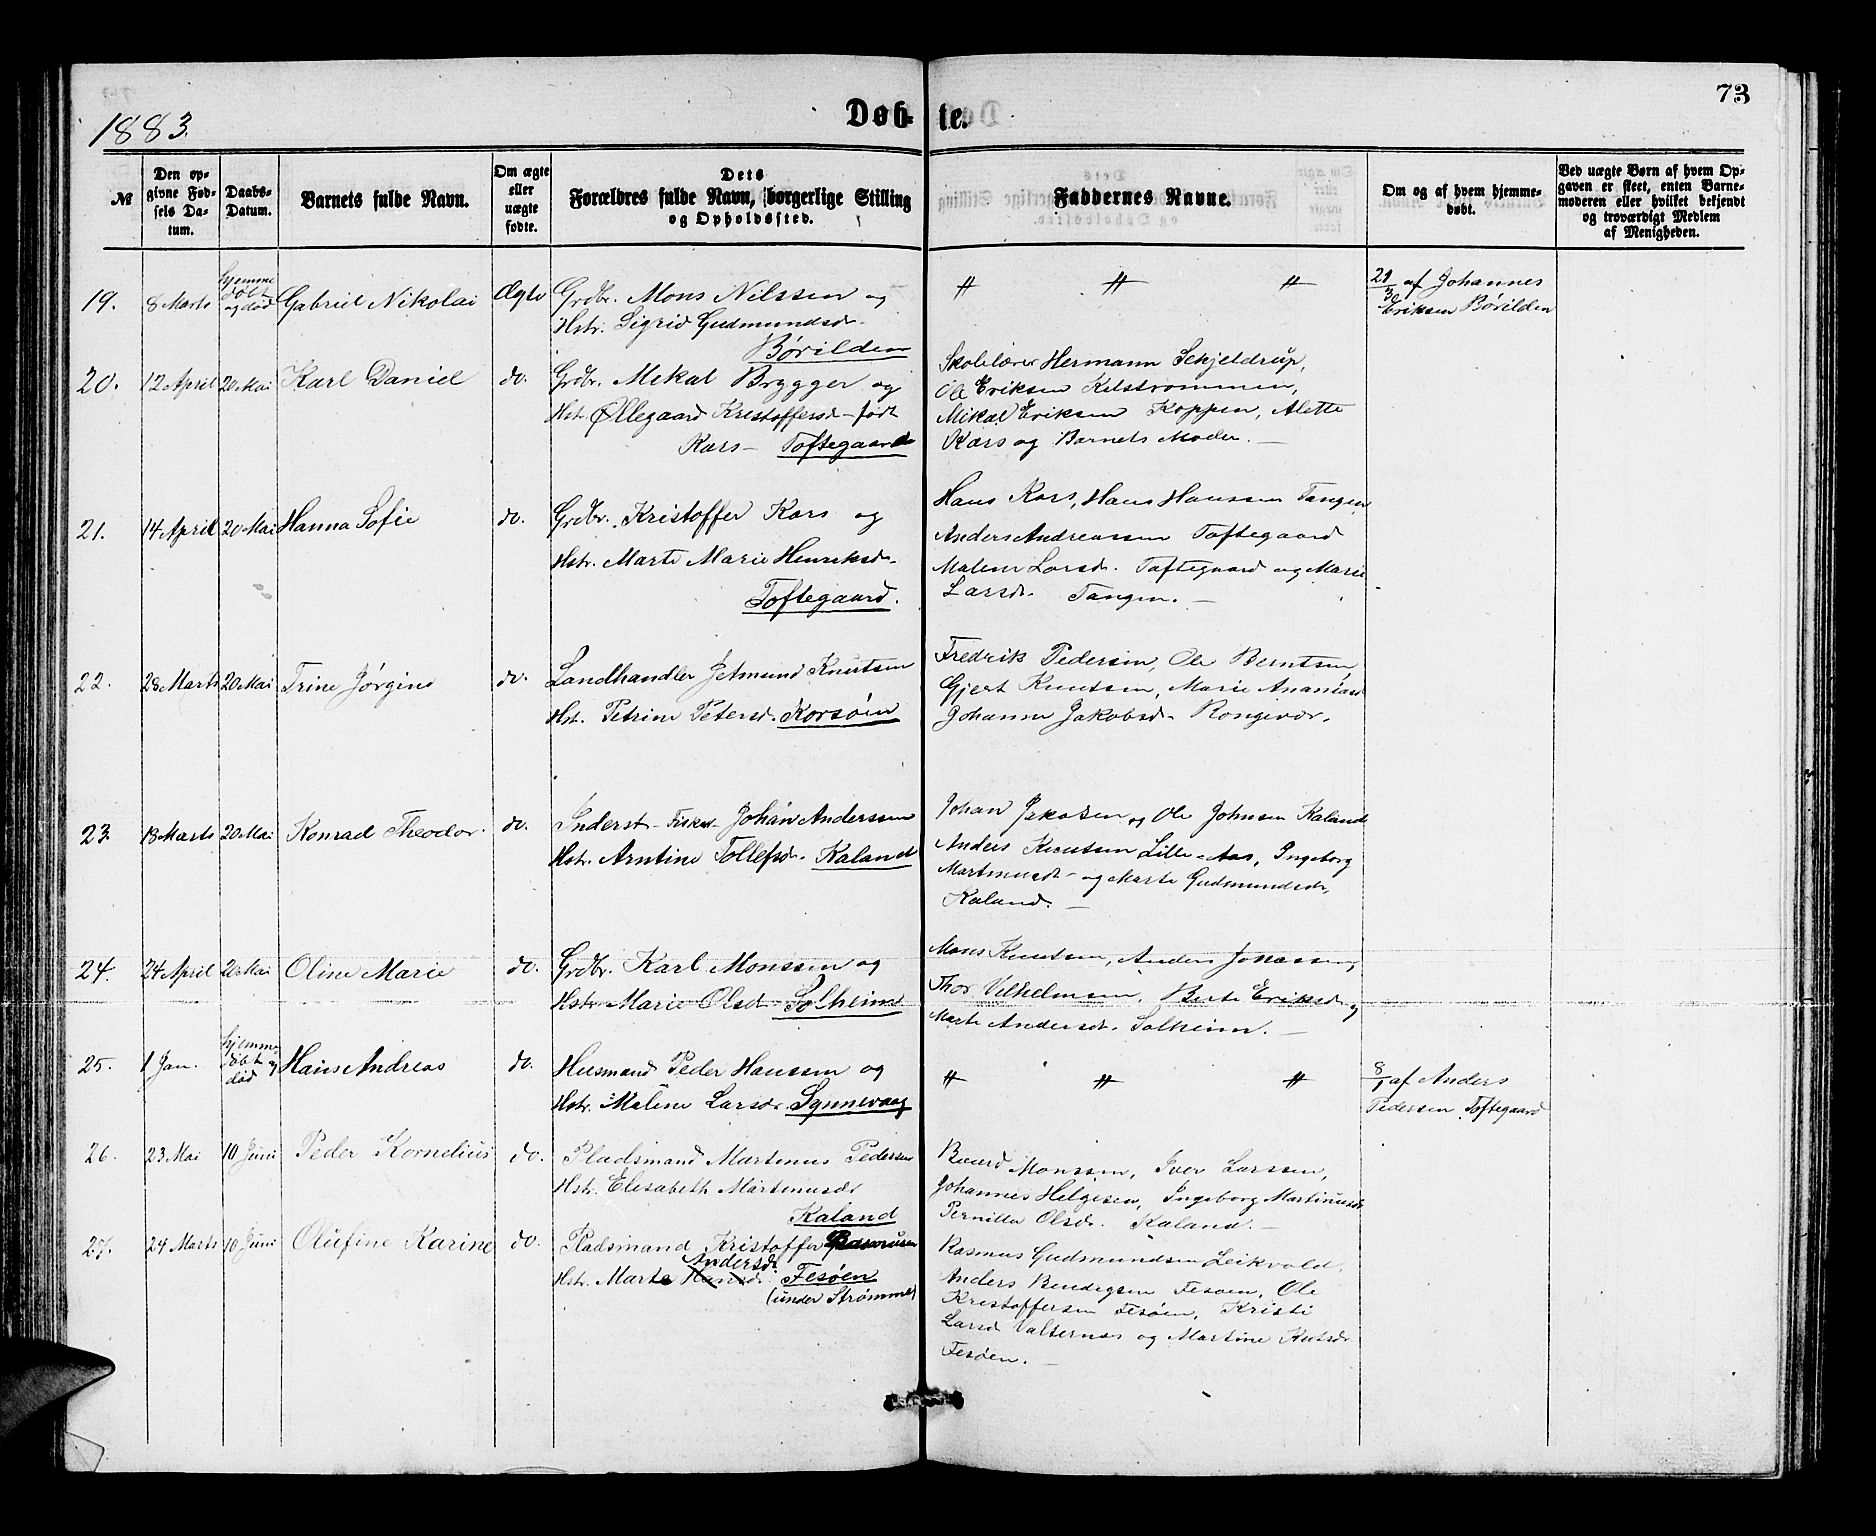 73
1883.
Døb-te.
№
Den op-
givne Fød-
sels Da-
tum.
Daabs-
Datum.
Barnets fulde Navn.
Om ægte
eller
uægte
fødte.
Dets
Forældres fulde Navn, borgerlige Stilling
og Opholdssted.
Faddernes Navne.
Om og af hvem hjemme-
døbt.
Ved uægte Børn af hvem Op-
gaven er skeet, enten Barne-
moderen eller hvilket bekjendt
og troværdigt Medlem
af Menigheden.
19. 8 Marts hjemme
døbt
og død Gabriel Nikolai Ægte Grdbr. Mons Nilssen og
Hstr. Sigrid Gudmundsdr.
Børilden
〃 〃 〃
21/3 af Johannes
Eriksen Børilden
20. 12 April 20 Mai Karl Daniel do. Grdbr. Mekal Brygger og
Hst. Øllegaard Kristoffersd- født
Kars- Toftegaard
Skolelærer Hermann Schjeldrup,
Ole Eriksen Kilstrommen,
Mikal Eriksen Koppen, Alette
Kars og Barnets Moder. —
21. 14 April 20 Mai Hanna Sofie do. Grdbr. Kristoffer Kars og
Hstr. Marte Marie Henriksdr.
Toftegaard.
Hans Kars, Hans Hanssen Tangen
Anders Andreassen Toftegaard
Malene Larsdr. Toftegaard og Marie
Larsdr. Tangen. —
22. 28 Marts 20 Mai Trine Jørgine do. Landhandler Jetmund Knutsen
Hst. Petrine Petersd. Korsøen
Fredrik Pedersen, Ole Berntsen,
Gjert Knutsen, Marie Ananiasd
Johanne Jakobsd. Rongevær.
23. 18 Marts 20 Mai Konrad Theodor. do. Inderst - Fisker - Johan Anderssen
Hstr. Arntine Tollefsdr. Kaland
Johan Jakobsen og Ole Johnsen Kaland
Anders Knutsen Lille-Aas, Ingeborg
Martinusdr og Marte Gudmundsdr,
Kaland. —
24. 24 April 20 Mai Oline Marie do. Grdbr. Karl Monssen og
Hstr. Marie Olsd. Solheim
Mons Knutsen, Anders Jonassen,
Thor Vilhelmsen, Berte Eriksd og
Marte Andersdr. Solheim. —
25. 1 Jan. hjemme
døbt og
død Hans Andreas do. Husmand Peder Hanssen og
Hstr. Malene Larsdr. Synnevaag
〃 〃 〃
8/1 af Anders
Pedersen Toftegaard
26. 23 Mai 10 Juni Peder Kornelius do. Pladsmand Martinus Pedersen
Hstr. Elisabeth Martinusdr
Kaland
Baard Monssen, Iver Larssen,
Johannes Helgesen, Ingeborg Martinusdr
Pernille Olsdr. Kaland. —
27. 24 Marts 10 Juni Olufine Karine do. Pladsmand Kristoffer
Andersdr.
Hstr. Marte Hansdr. Fesøen
(under Strømme)
Rasmus Gudmundsen Leikvold,
Anders Bendigsen Fesøen, Ole
Kristoffersen Fesøen, Kristi
Larsd Valsernes og Martine Knutsdr
Fesøen. —